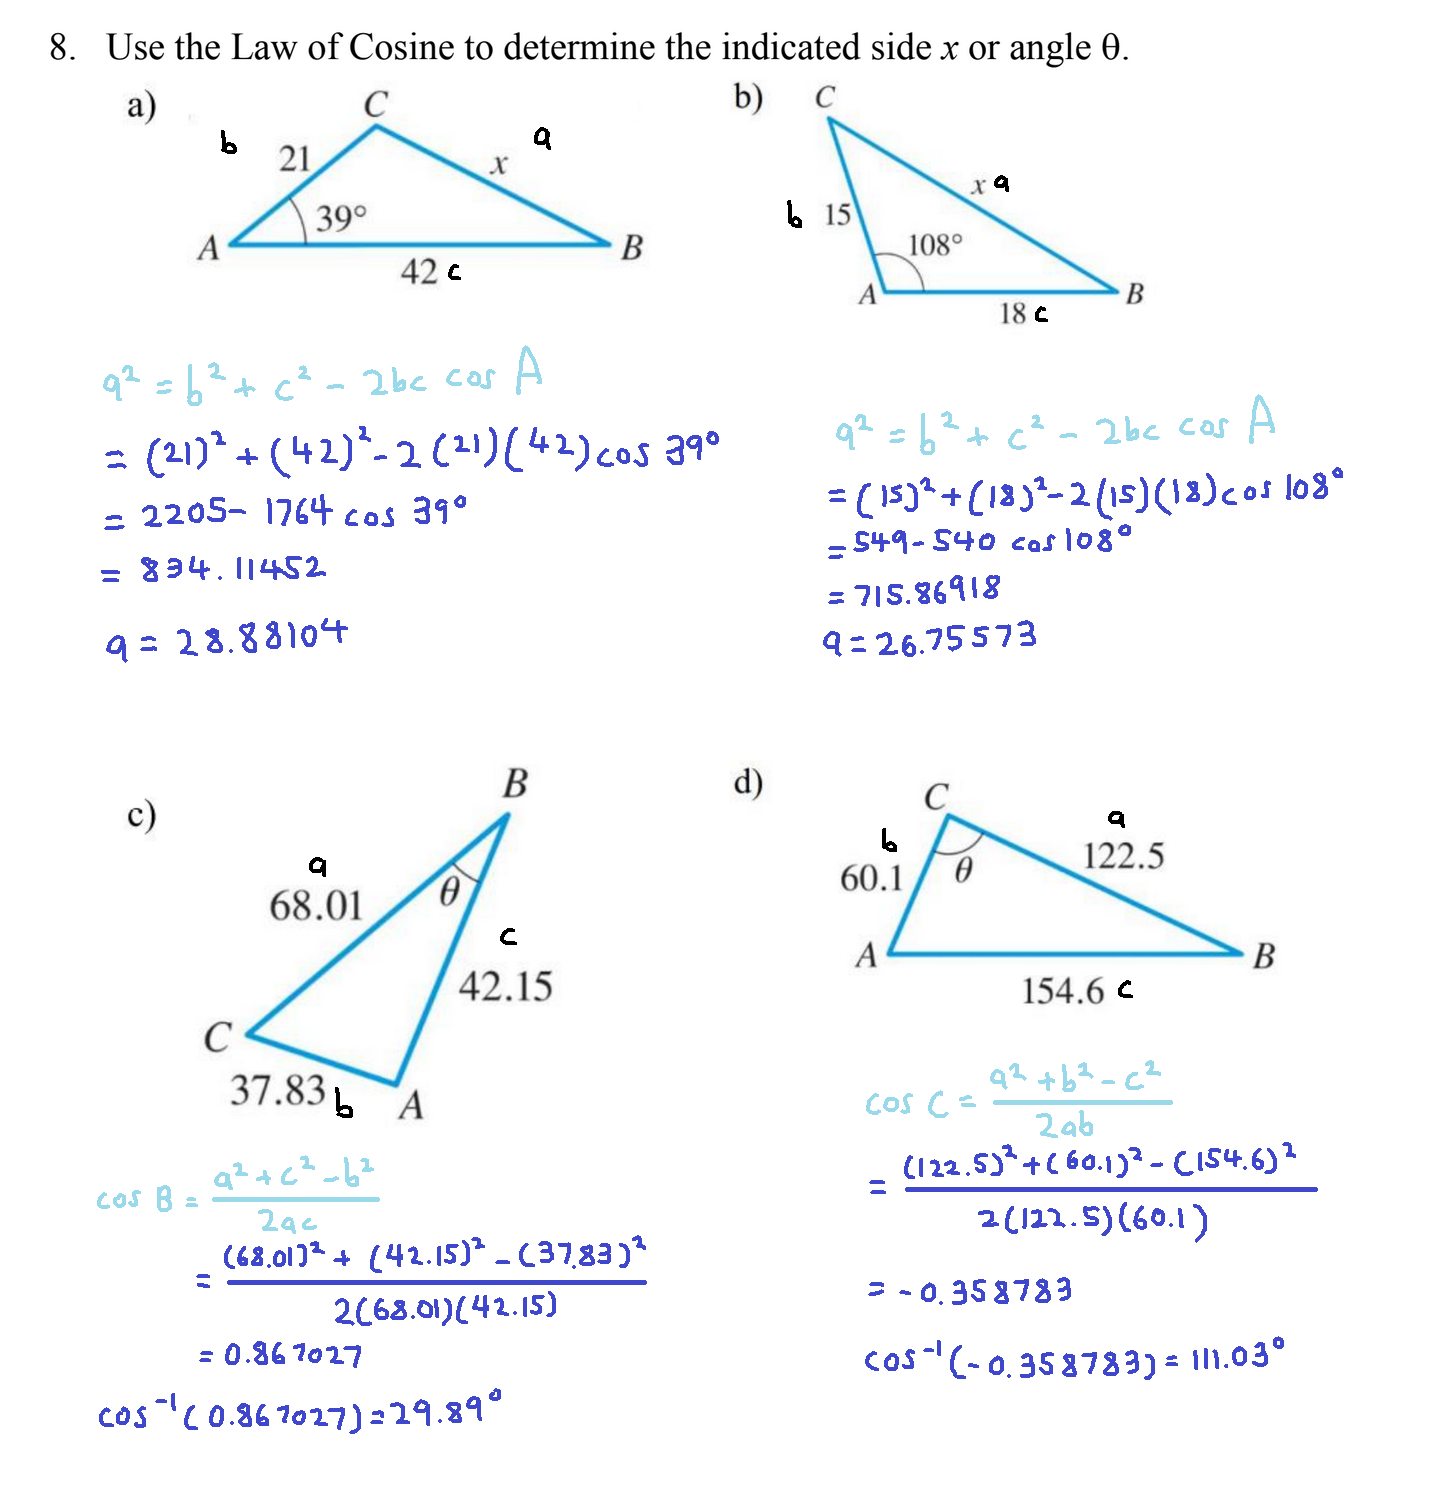 8. Use the Law of Cosine to determine the indicated side x or angle θ.
a)
C
b
21
x
a
39°
A
B
42 c
a² = b² + c² - 2bc cos A
= (21)² + (42)² - 2 (21)(42) cos 39°
= 2205 - 1764 cos 39°
= 834.11452
a = 28.88104
b)
C
x a
b 15
108°
A
B
18 c
a² = b² + c² - 2bc cos A
= (15)² + (18)² - 2(15)(18) cos 108°
= 549 - 540 cos 108°
= 715.86918
a = 26.75573
c)
B
a
68.01
θ
c
42.15
C
37.83 b
A
cos B = (a² + c² - b²) / 2ac
= ((68.01)² + (42.15)² - (37.83)²) / 2(68.01)(42.15)
= 0.867027
cos⁻¹(0.867027) = 29.89°
d)
C
a
b
122.5
60.1
θ
A
B
154.6 c
cos C = (a² + b² - c²) / 2ab
= ((122.5)² + (60.1)² - (154.6)²) / 2(122.5)(60.1)
= -0.358783
cos⁻¹(-0.358783) = 111.03°